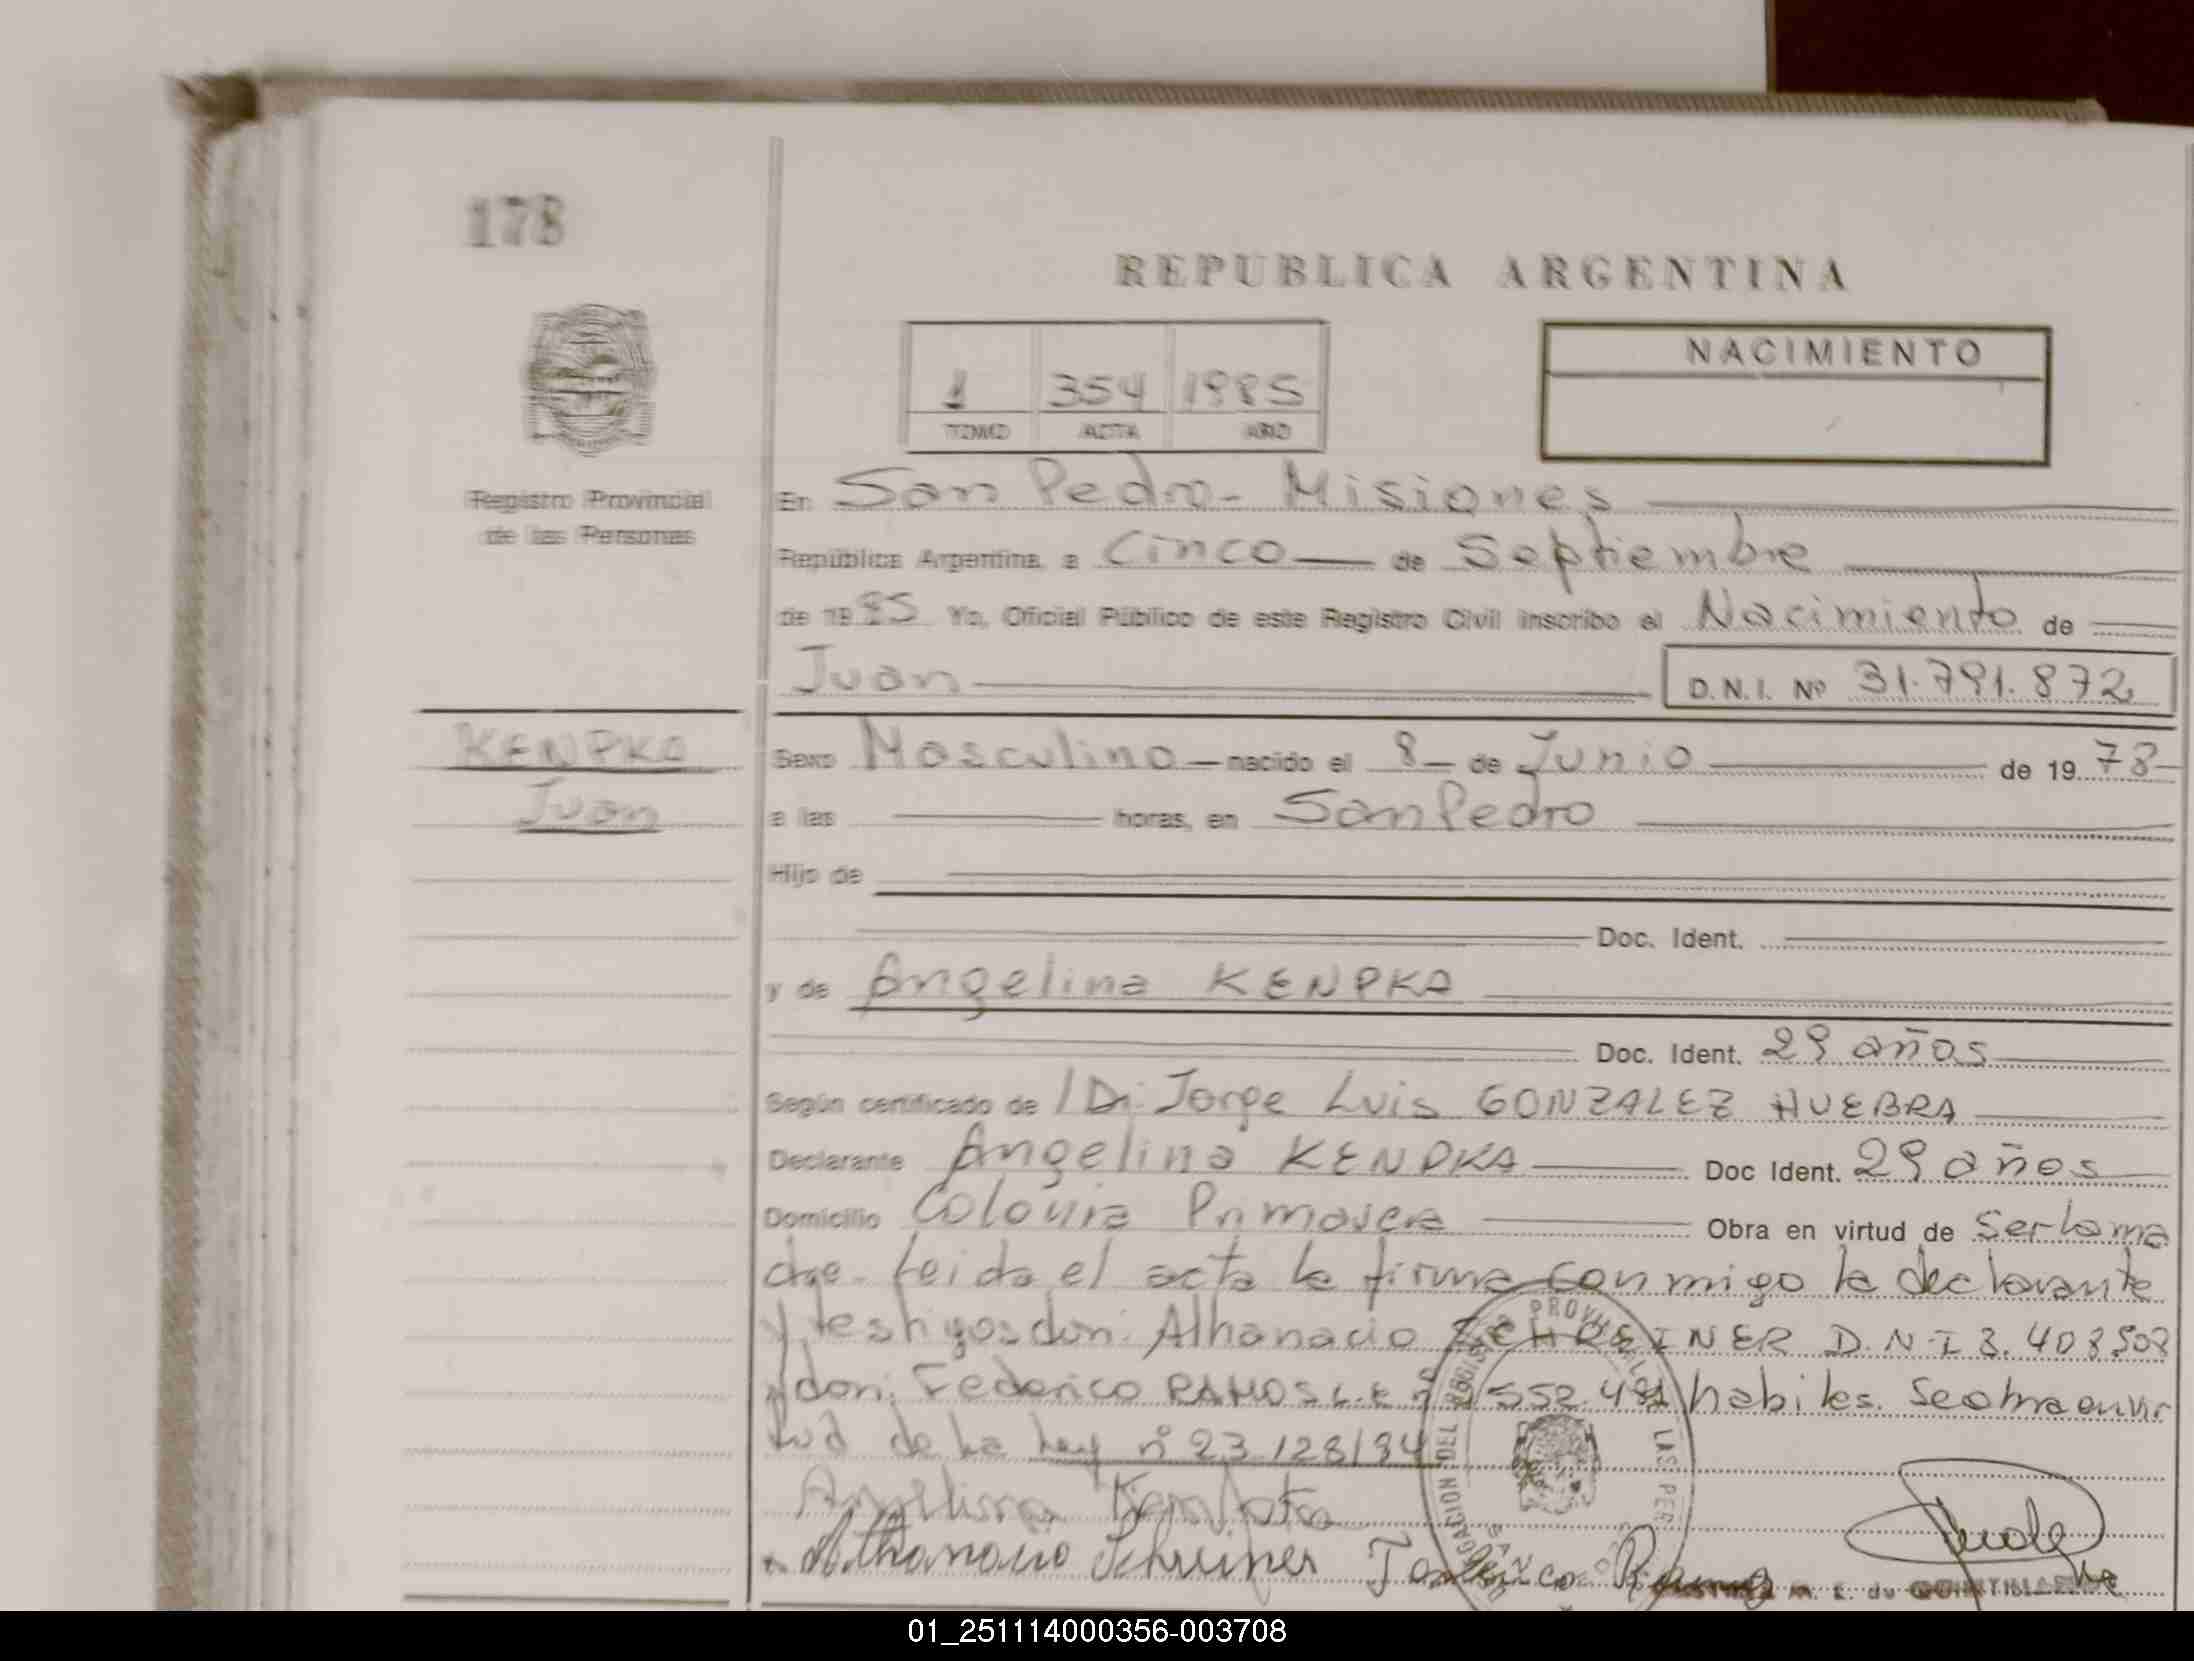 178
REPUBLICA ARGENTINA
NACIMIENTO
1 354 1985
TOMO ACTA AÑO
Registro Provincial
de las Personas
En San Pedro - Misiones
República Argentina, a Cinco de Septiembre
de 1985 Yo, Oficial Público de este Registro Civil inscribo el Nacimiento de
Juan D.N.I. Nº 31.791.872
KENPKA
Juan
Sexo Masculino nacido el 8 de Junio de 1978
a las horas, en San Pedro
Hijo de
Doc. Ident.
y de Angelina KENPKA
Doc. Ident. 29 años
Según certificado de Dr. Jorge Luis GONZALEZ HUEBRA
Declarante Angelina KENPKA Doc Ident. 29 años
Domicilio Colonia Primavera Obra en virtud de ser la ma
dre. Leida el acta la firma conmigo la declarante
y testigos don: Athanacio SCHREINER D.N.I 8.408508
y don: Federico RAMOS L.E nº 552.491 habiles. Se obra en vir
tud de la ley nº 23.128/84
Angelina Kenpka
Athanacio Schreiner Federico Ramos
DELEGACION DEL REGISTRO PROVINCIAL LAS PER
01_251114000356-003708